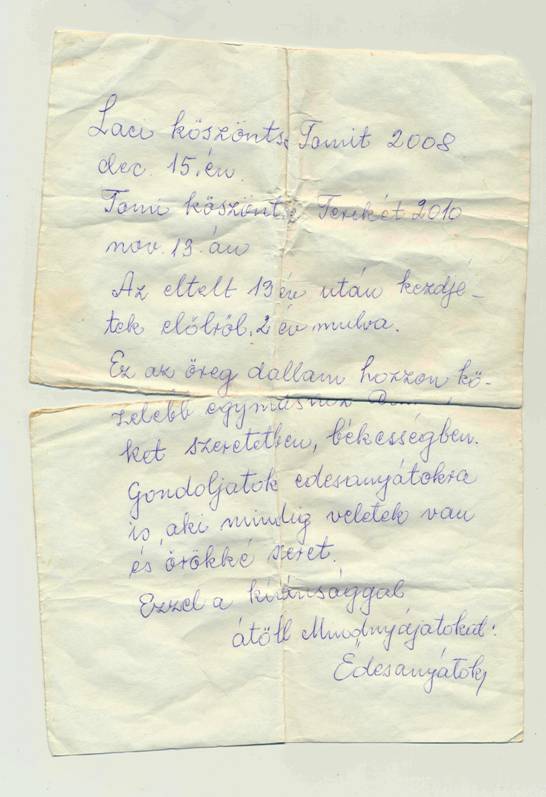 Laci köszöntse Tomit 2008
dec. 15.én.
Tomi köszöntse Terikét 2010
nov. 13.án
Az eltelt 13 év után kezdjé-
tek elölről. 2 év mulva.
Ez az öreg dallam hozzon kö-
zelebb egymáshoz
ket szeretetben, békességben.
Gondoljatok edesanyátokra
is, aki mindig veletek van
és örökké szeret.
Ezzel a kívánsággal
átöll Mindnyájatokat:
Édesanyátok